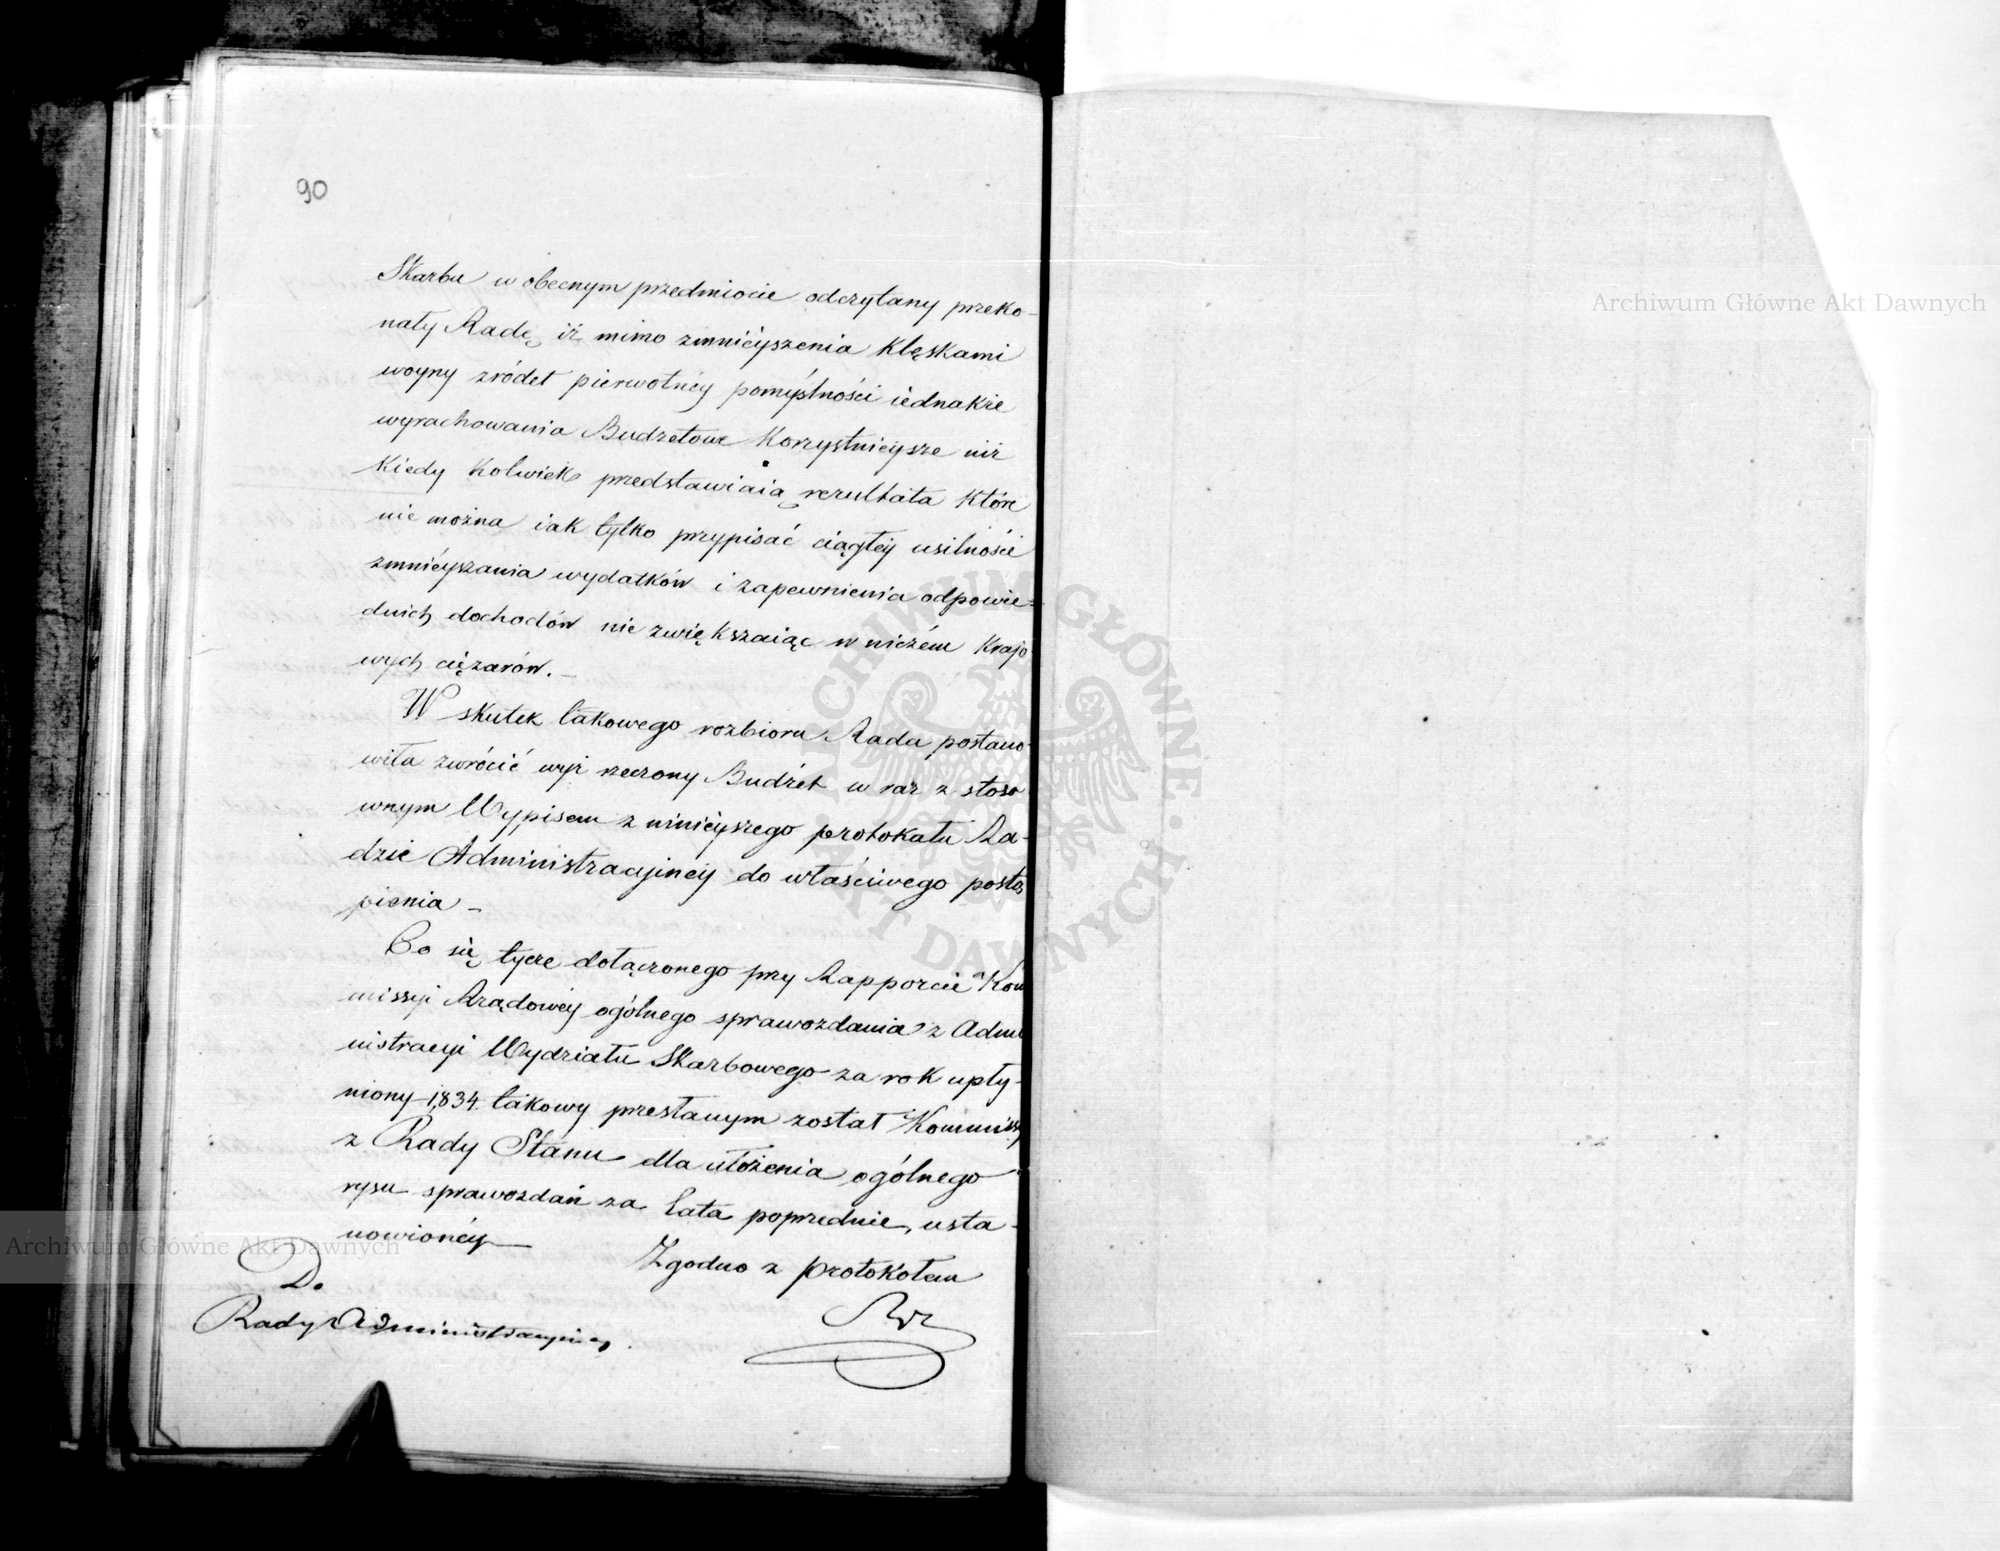 90
Skarbu w obecnym przedmiocie odczytany przeko-
nały Radę iż mimo zmnieyszenia klęskami
woyny źródeł pierwotnéy pomyślności iednakże
wyrachowania Budżetowe korzystnieysze niż
kiedy kolwiek przedstawiaią rezultata które
nie można iak tylko przypisać ciągłéy usilności
zmniéyszania wydatków i zapewnienia odpowie-
dnich dochodów nie zwiększaiąc w niczém krajo
wych ciężarów. –
W skutek takowego rozbioru Rada postano
wiła zwrócić wyż rzeczony Budżet w raz z stoso
wnym Wypisem z ninieyszego protokułu Ra-
dzie Administracyjnéy do właściwego postą
pienia –
Co się tycze dołączonego przy Rapporcie Kom
missyi Rządowéy ogólnego sprawozdania z Admi
nistracyi Wydziału Skarbowego za rok upły-
niony 1834 takowy przesłanym został Kommissy
z Rady Stanu dla ułożenia ogólnego
rysu sprawozdań za lata poprzednie, usta-
nowionéy –
Zgodno z protokołem
Do
Rady Administracyiney.
Archiwum Główne Akt Dawnych
Archiwum Główne Akt Dawnych
ARCHIWUM GŁÓWNE AKT DAWNYCH